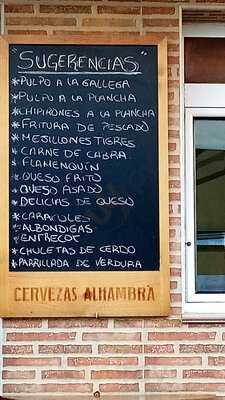 "SUGERENCIAS"
*PULPO A LA GALLEGA
*PULPO A LA PLANCHA
*CHIPIRONES A LA PLANCHA
*FRITURA DE PESCADO
*MEJILLONES TIGRES
*CARNE DE CABRA
*FLAMENQUÍN
*QUESO FRITO
*QUESO ASADO
*DELICIAS DE QUESO
*CARACOLES
*ALBONDIGAS
*ENTRECOT
*CHULETAS DE CERDO
*PARRILLADA DE VERDURA
CERVEZAS ALHAMBRA